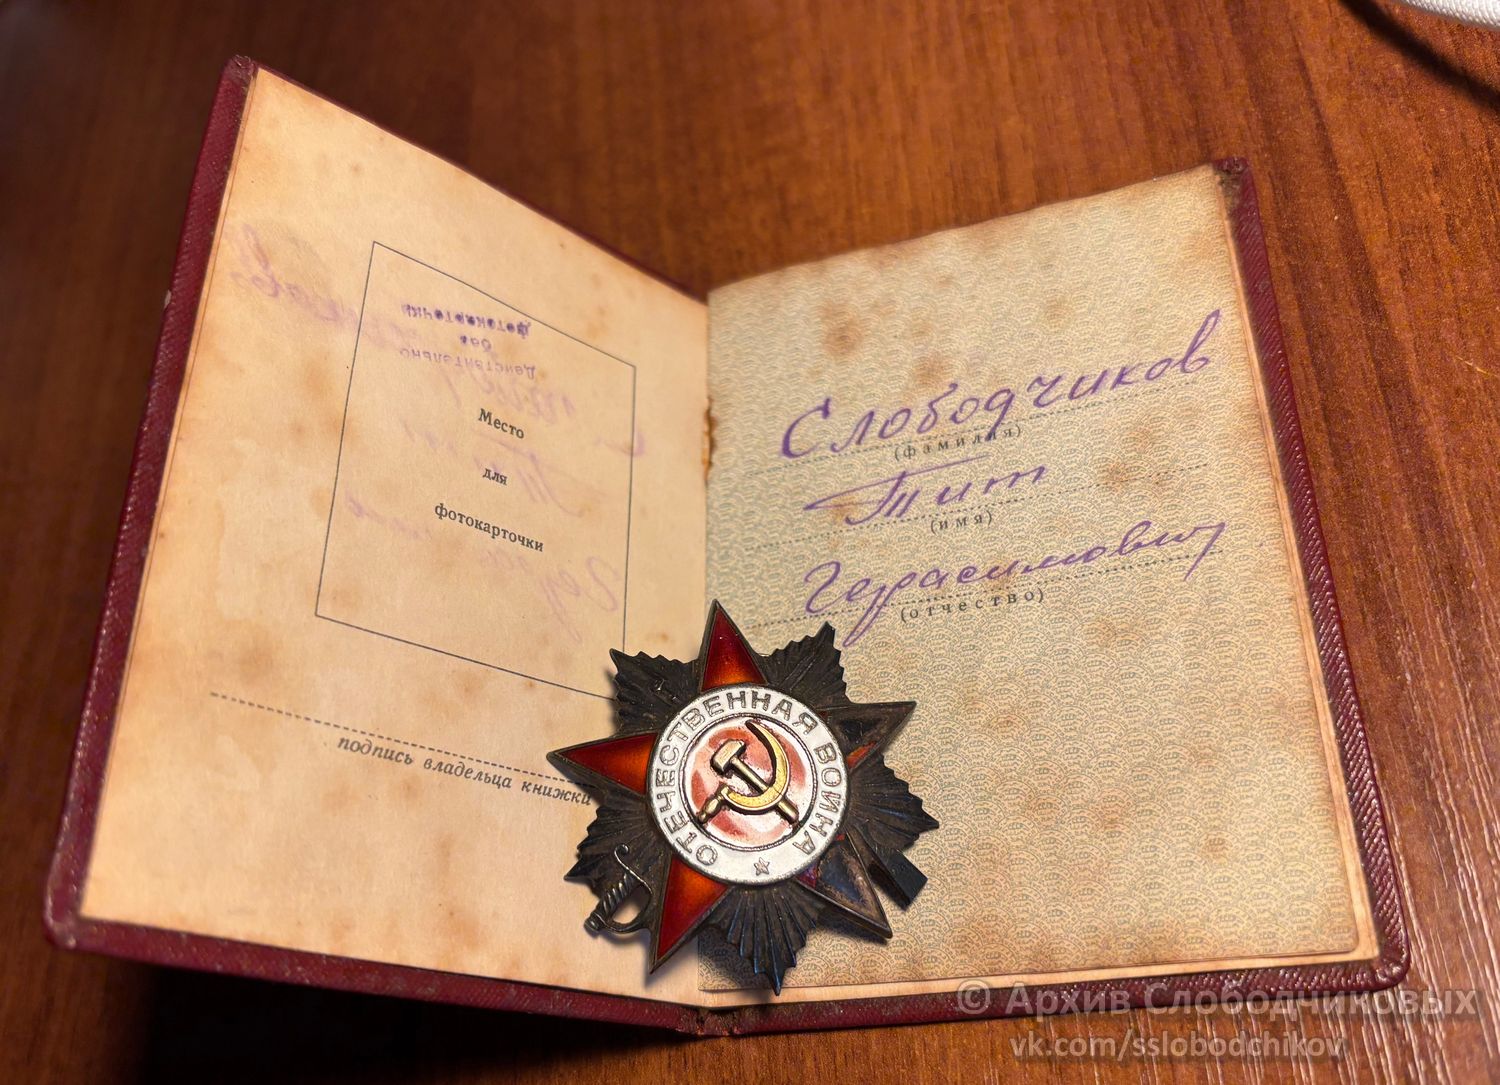 Действительно
без
фотокарточки
Место
для
фотокарточки
подпись владельца книжки
Слободчиков
(фамилия)
Тит
(имя)
Герасимович
(отчество)
ОТЕЧЕСТВЕННАЯ ВОЙНА
© Архив Слободчиковых
vk.com/sslobodchikov